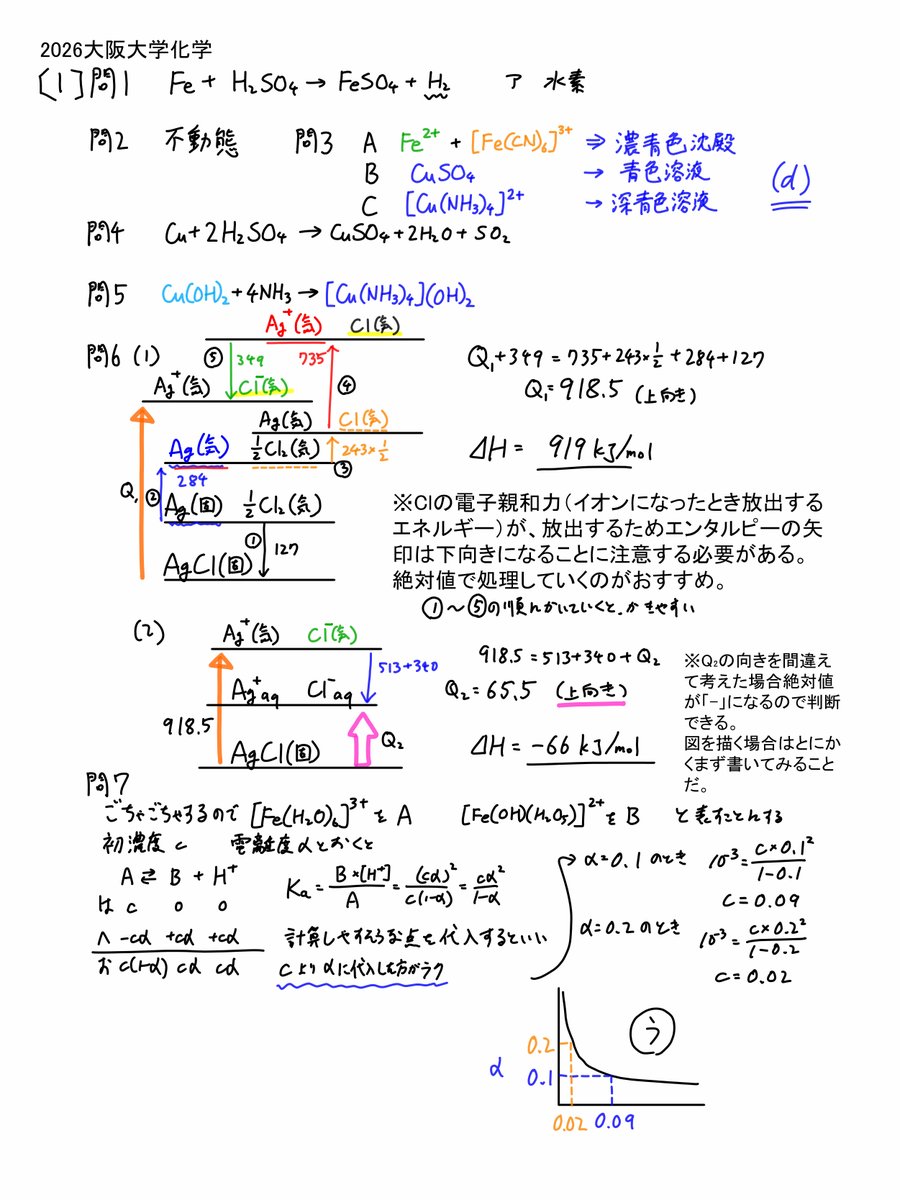 2026大阪大学化学
[1]問1 Fe + H₂SO₄ → FeSO₄ + H₂ ア 水素
問2 不動態 問3 A Fe²⁺ + [Fe(CN)₆]³⁺ ⇒ 濃青色沈殿
B CuSO₄ → 青色溶液 (d)
C [Cu(NH3)₄]²⁺ → 深青色溶液
問4 Cu + 2H₂SO₄ → CuSO₄ + 2H₂O + SO₂
問5 Cu(OH)₂ + 4NH₃ → [Cu(NH3)₄](OH)₂
問6 (1)
Ag⁺(気) Cl(気)
⑤ 349 735 ④
Ag⁺(気) Cl⁻(気)
Ag(気) Cl(気)
Ag(気) ½Cl₂(気) 243×½
③
284
Q₁ ② Ag(固) ½Cl₂(気)
① 127
AgCl(固)
Q₁+349 = 735+243×½+284+127
Q₁=918.5 (上向き)
ΔH = 919 kJ/mol
※Clの電子親和力(イオンになったとき放出する
エネルギー)が、放出するためエンタルピーの矢
印は下向きになることに注意する必要がある。
絶対値で処理していくのがおすすめ。
①〜⑤の順でかいていくと、かきやすい
(2)
Ag⁺(気) Cl⁻(気)
513+340
Ag⁺aq Cl⁻aq
918.5 Q₂
AgCl(固)
918.5 = 513+340+Q₂
Q₂ = 65.5 (上向き)
ΔH = -66 kJ/mol
※Q₂の向きを間違え
て考えた場合絶対値
が「-」になるので判断
できる。
図を描く場合はとにか
くまず書いてみること
だ。
問7
ごちゃごちゃするので [Fe(H₂O)₆]³⁺を A [Fe(OH)(H₂O₅)]²⁺を B と表すことにする
初濃度 c 電離度 αとおくと
A ⇄ B + H⁺
は c 0 0
へ -cα +cα +cα
お c(1-α) cα cα
Ka = B×[H⁺]/A = (cα)²/c(1-α) = cα²/1-α
計算しやすそうな点を代入するといい
cよりαに代入した方がラク
α=0.1 のとき 10⁻³ = c×0.1²/1-0.1
c = 0.09
α=0.2 のとき 10⁻³ = c×0.2²/1-0.2
c = 0.02
う
α
0.2
0.1
0.02 0.09